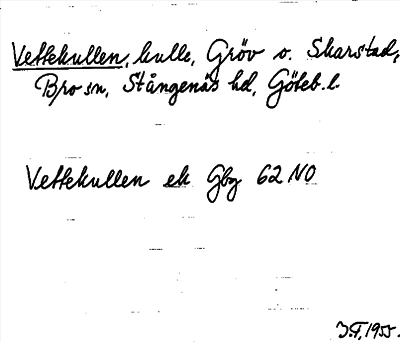 Vettekullen, kulle, Gröv o. Skarstad,
Bro sn, Stångenäs hd, Göteb. l.
Vettekullen ek Gbg 62 NO
J.F, 1955.